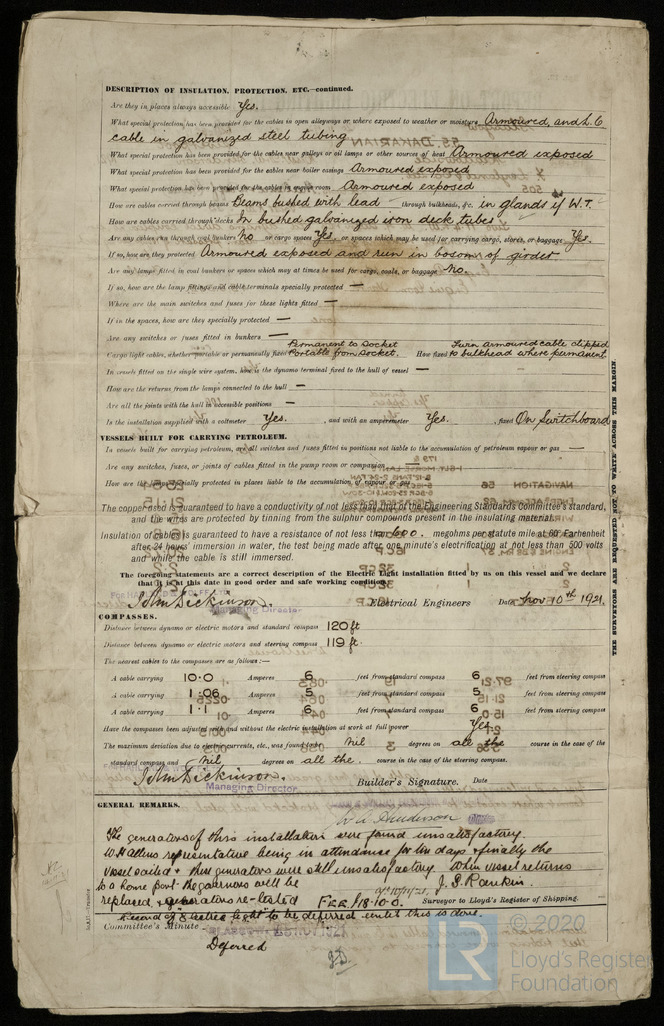 DESCRIPTION OF INSULATION, PROTECTION, ETC.—continued.
Are they in places always accessible Yes.
What special protection has been provided for the cables in open alleyways or where exposed to weather or moisture Armoured, and L.C
cable in galvanized steel tubing
What special protection has been provided for the cables near galleys or oil lamps or other sources of heat Armoured exposed
What special protection has been provided for the cables near boiler casings Armoured exposed
What special protection has been provided for the cables in engine room Armoured exposed
How are cables carried through beams Beams bushed with lead through bulkheads, &c. in glands if W.T.
How are cables carried through decks In bushed galvanized iron deck tubes
Are any cables run through coal bunkers No or cargo spaces Yes, or spaces which may be used for carrying cargo, stores, or baggage Yes.
If so, how are they protected Armoured exposed and run in bosom of girder
Are any lamps fitted in coal bunkers or spaces which may at times be used for cargo, coals, or baggage No.
If so, how are the lamp fittings and cable terminals specially protected —
Where are the main switches and fuses for these lights fitted —
If in the spaces, how are they specially protected —
Are any switches or fuses fitted in bunkers —
Cargo light cables, whether portable or permanently fixed Permanent to socket Portable from socket. How fixed Turn armoured cable clipped to bulkhead where permanent
In vessels fitted on the single wire system, how is the dynamo terminal fixed to the hull of vessel —
How are the returns from the lamps connected to the hull —
Are all the joints with the hull in accessible positions —
Is the installation supplied with a voltmeter Yes. , and with an amperemeter Yes. , fixed On Switchboard
VESSELS BUILT FOR CARRYING PETROLEUM.
In vessels built for carrying petroleum, are all switches and fuses fitted in positions not liable to the accumulation of petroleum vapour or gas —
Are any switches, fuses, or joints of cables fitted in the pump room or companion
How are the lamps specially protected in places liable to the accumulation of vapour or gas
The copper used is guaranteed to have a conductivity of not less than that of the Engineering Standards Committee's standard,
and the wires are protected by tinning from the sulphur compounds present in the insulating material.
Insulation of cables is guaranteed to have a resistance of not less than 600. megohms per statute mile at 60° Farhenheit
after 24 hours' immersion in water, the test being made after one minute's electrification at not less than 500 volts
and while the cable is still immersed.
The foregoing statements are a correct description of the Electric Light installation fitted by us on this vessel and we declare
that it is at this date in good order and safe working condition.
John Dickinson. Electrical Engineers Date Nov 10th 1921
Managing Director
COMPASSES.
Distance between dynamo or electric motors and standard compass 120 ft
Distance between dynamo or electric motors and steering compass 119 ft
The nearest cables to the compasses are as follows:—
A cable carrying 10.0 Amperes 6 feet from standard compass 6 feet from steering compass
A cable carrying 1.06 Amperes 5 feet from standard compass 5 feet from steering compass
A cable carrying 1.1 Amperes 6 feet from standard compass 6 feet from steering compass
Have the compasses been adjusted with and without the electric installation at work at full power Yes
The maximum deviation due to electric currents, etc., was found to be Nil degrees on all the course in the case of the
standard compass and Nil degrees on all the. course in the case of the steering compass.
John Dickinson. Builder's Signature. Date
Managing Director
GENERAL REMARKS.
W A Henderson
The generators of this installation were found unsatisfactory.
W H Allens representative being in attendance for ten days & finally the
vessel sailed & these generators were still unsatisfactory When vessel returns
to a home port the governors will be
replaced, & generators re-tested
J. S. Rankin.
FEE £18.10.0. Surveyor to Lloyd's Register of Shipping.
Record of "Electric light" to be deferred until this is done.
Committee's Minute GLASGOW NOV 1921
Deferred
THE SURVEYORS ARE REQUESTED NOT TO WRITE ACROSS THIS MARGIN.
© 2020
LR
Lloyd's Register
Foundation